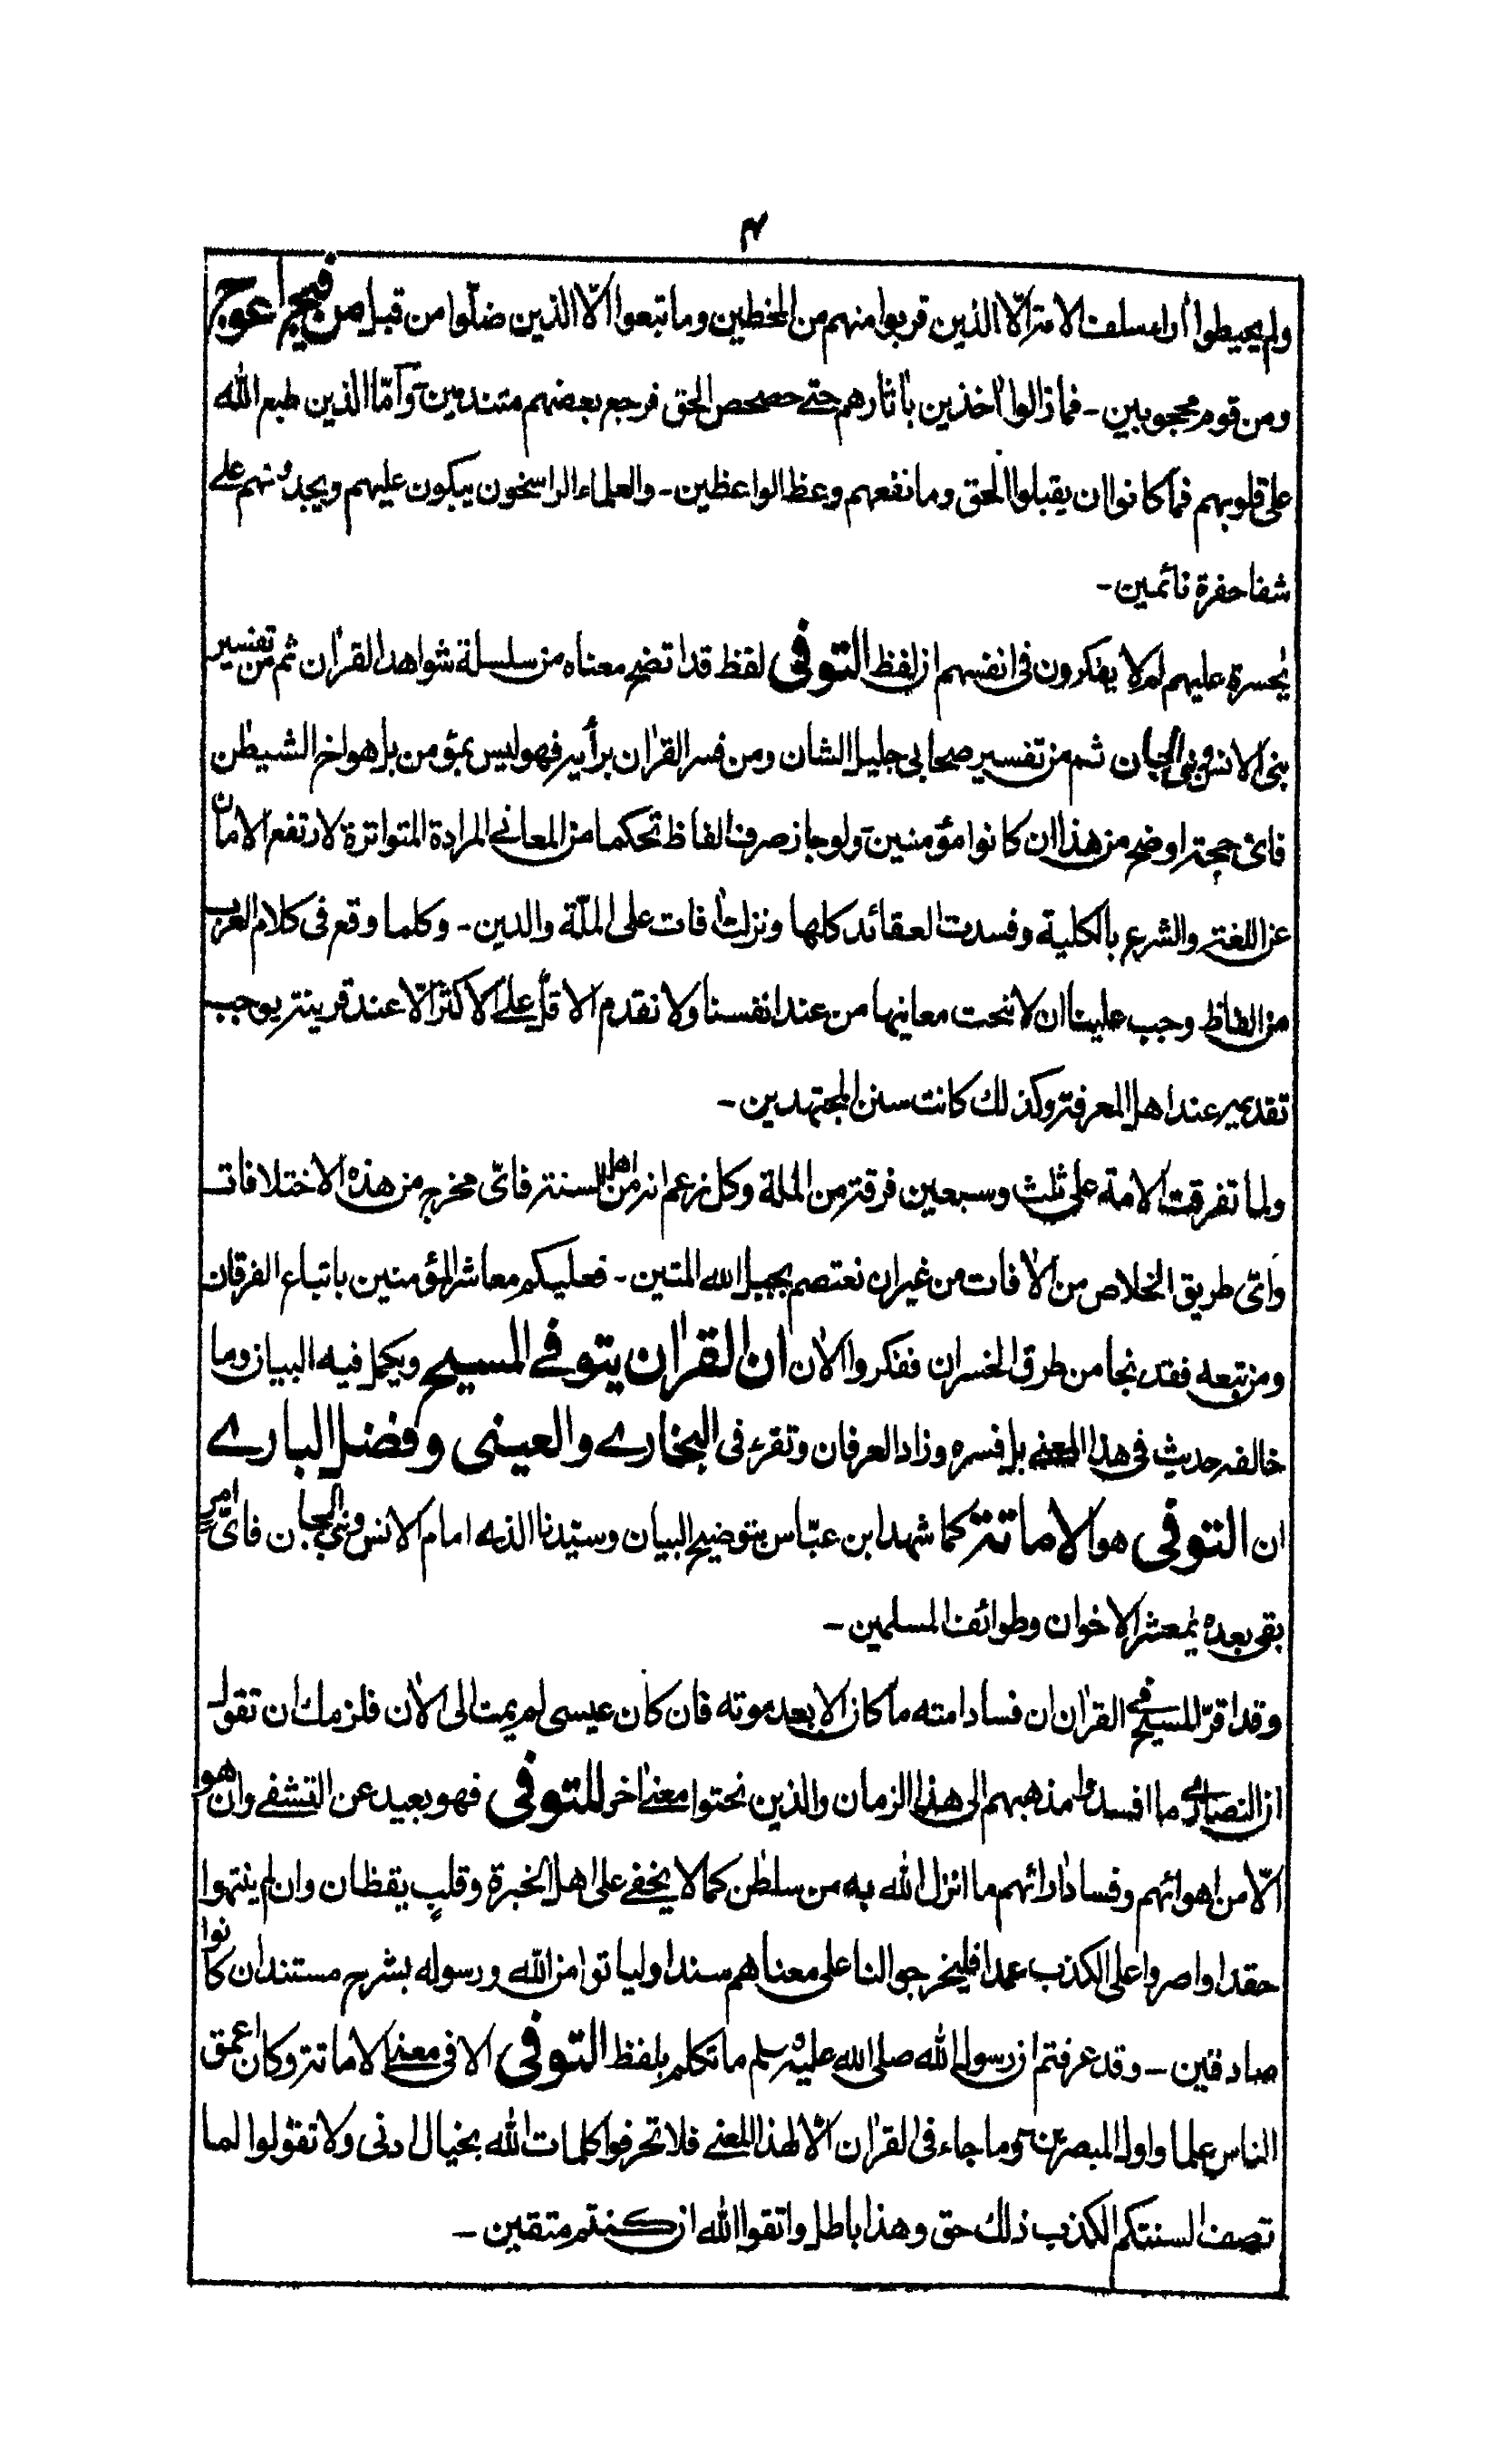 ۴
ولم يحيطوا اٰراء سلف الامة الّا الذين قربوا منهم من المخطين وما تبعوا الّا الذين ضلّوا من قبل من فيج اعوج
ومن قوم محجوبين۔ فما زالوا اٰخذين باٰثارهم حتے حصحص الحق فرجع بعضهم متندمين وَاَمّا الذين طبع الله
على قلوبهم فما كانوا ان يقبلوا الحق وما نفعهم وعظ الواعظين۔ والعلماء الراسخون يبكون عليهم ويجدونهم علے
شفا حفرة نائمين۔
يٰحسرة عليهم لم لا يفكرون فى انفسهم ان لفظ التوفى لفظ قد اتضح معناه من سلسلة شواهد القراٰن ثم من تفسير
نبى الانس ونبى الجان ثم من تفسير صحابى جليل الشان ومن فسر القراٰن برأيه فهو ليس بمؤمن بل هو اخ الشيطٰن
فاىّ حجة اوضح من هذا ان كانوا مؤمنين ولو جاز صرف الفاظ تحكما من المعانے المرادة المتواترة لارتفع الامان
عن اللغة والشرع بالكلية وفسدت العقائد كلها ونزلت اٰفات على الملّة والدين۔ وكلما وقع فى كلام العرب
من الفاظ وجب علينا ان لا ننحت معانيها من عند انفسنا ولا نقدم الاقل علے الاكثر الّا عند قرينة يوجب
تقديمه عند اهل المعرفة وكذلك كانت سنن المجتهدين۔
ولما تفرقت الامة على ثلٰث وسبعين فرقة من الملة وكل زعم انه من اهل السنة فاىّ مخرج من هذه الاختلافات
واىّ طريق الخلاص من الاٰفات من غير ان نعتصم بحبل الله المتين۔ فعليكم معاشر المؤمنين باتباع الفرقان
ومن تبعه فقد نجا من طرق الخسران ففكروا الاٰن ان القراٰن يتوفے المسيح ويكمل فيه البيان وما
خالفه حديث فى هذا المعنے بل فسره وزاد العرفان وتقرء فى البخارے والعينى وفضل البارے
ان التوفى هو الاماتة كما شهد ابن عبّاس بتوضيح البيان وسيّدنا الذى امام الانس ونبى الجان فاىّ امرٍ
بقى بعده يٰمعشر الاخوان وطوائف المسلمين۔
وقد اقرّ المسيح فى القراٰن ان فساد امته ما كان الا بعد موته فان كان عيسى لم يمت الى الاٰن فلزمك ان تقول
ان النصارٰى ما افسدوا مذهبهم الى هذا الزمان والذين نحتوا معنے اٰخر للتوفى فهو بعيد عن التشفے وان هو
الّا من اهوائهم وفساد اٰرائهم ما انزل الله به من سلطٰن كما لا يخفے على اهل الخبرة وقلبٍ يقظان وان لم ينتهوا
حقدا واصروا على الكذب عمدا فليخرجوا لنا على معناهم سندا وليأتوا من الله ورسوله بشرح مستند ان كانوا
صادقين۔ وقد عرفتم ان رسول الله صلى الله عليه وسلم ما تكلم بلفظ التوفى الا فى معنے الاماتة وكان اعمق
الناس علما واول المبصرين وما جاء فى القراٰن الّا لهذا المعنے فلا تحرفوا كلمات الله بخيال ادنى ولا تقولوا لما
تصف السنتكم الكذب ذلك حق وهذا باطل واتقوا الله ان كنتم متقين۔